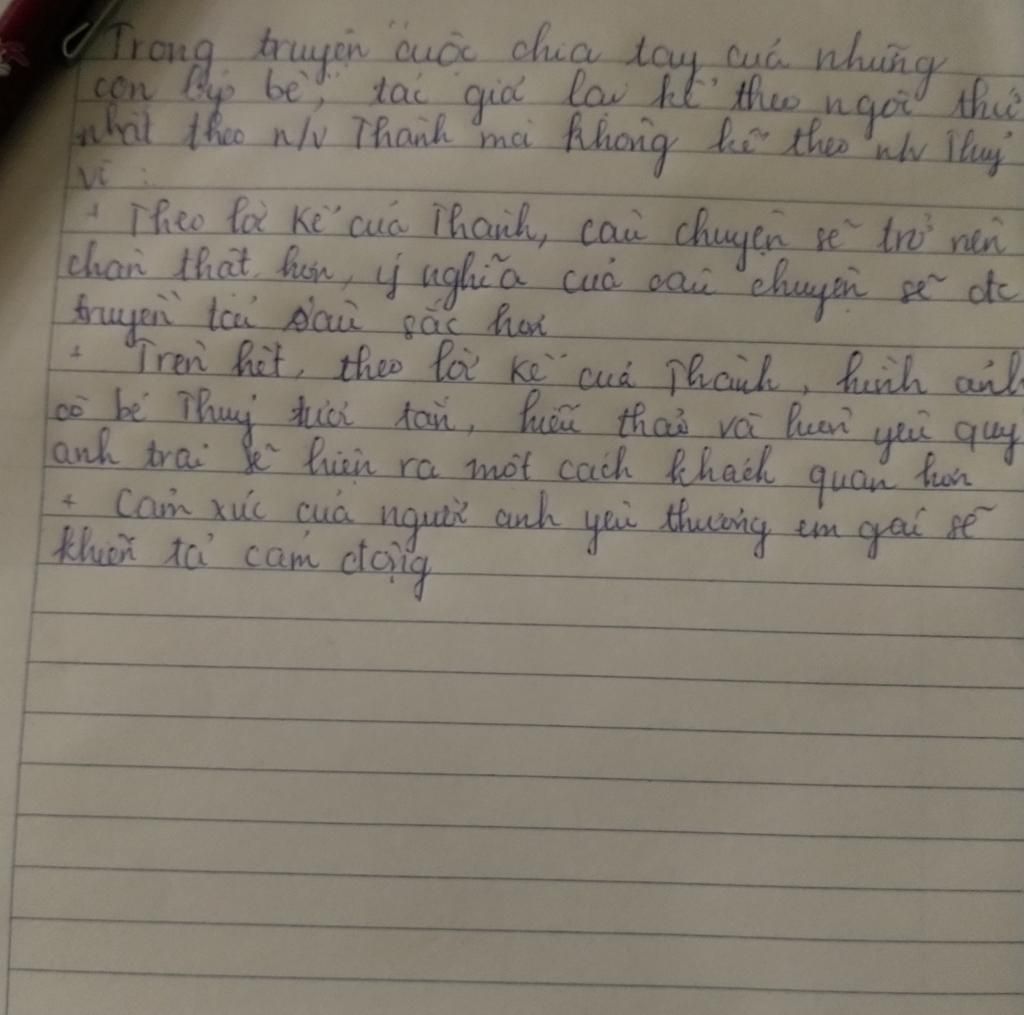 Trong truyện "cuộc chia tay của những
con búp bê", tác giả lại kể theo ngôi thứ
nhất theo n/v Thành mà không kể theo n/v Thuỷ
vì :
+ Theo lời kể của Thành, câu chuyện sẽ trở nên
chân thật hơn, ý nghĩa của câu chuyện sẽ đc
truyền tải sâu sắc hơn
+ Trên hết, theo lời kể của Thành, hình ảnh
cô bé Thuỷ tươi tắn, hiếu thảo và luôn yêu quý
anh trai sẽ hiện ra một cách khách quan hơn
+ Cảm xúc của người anh yêu thương em gái sẽ
khiến ta cảm động